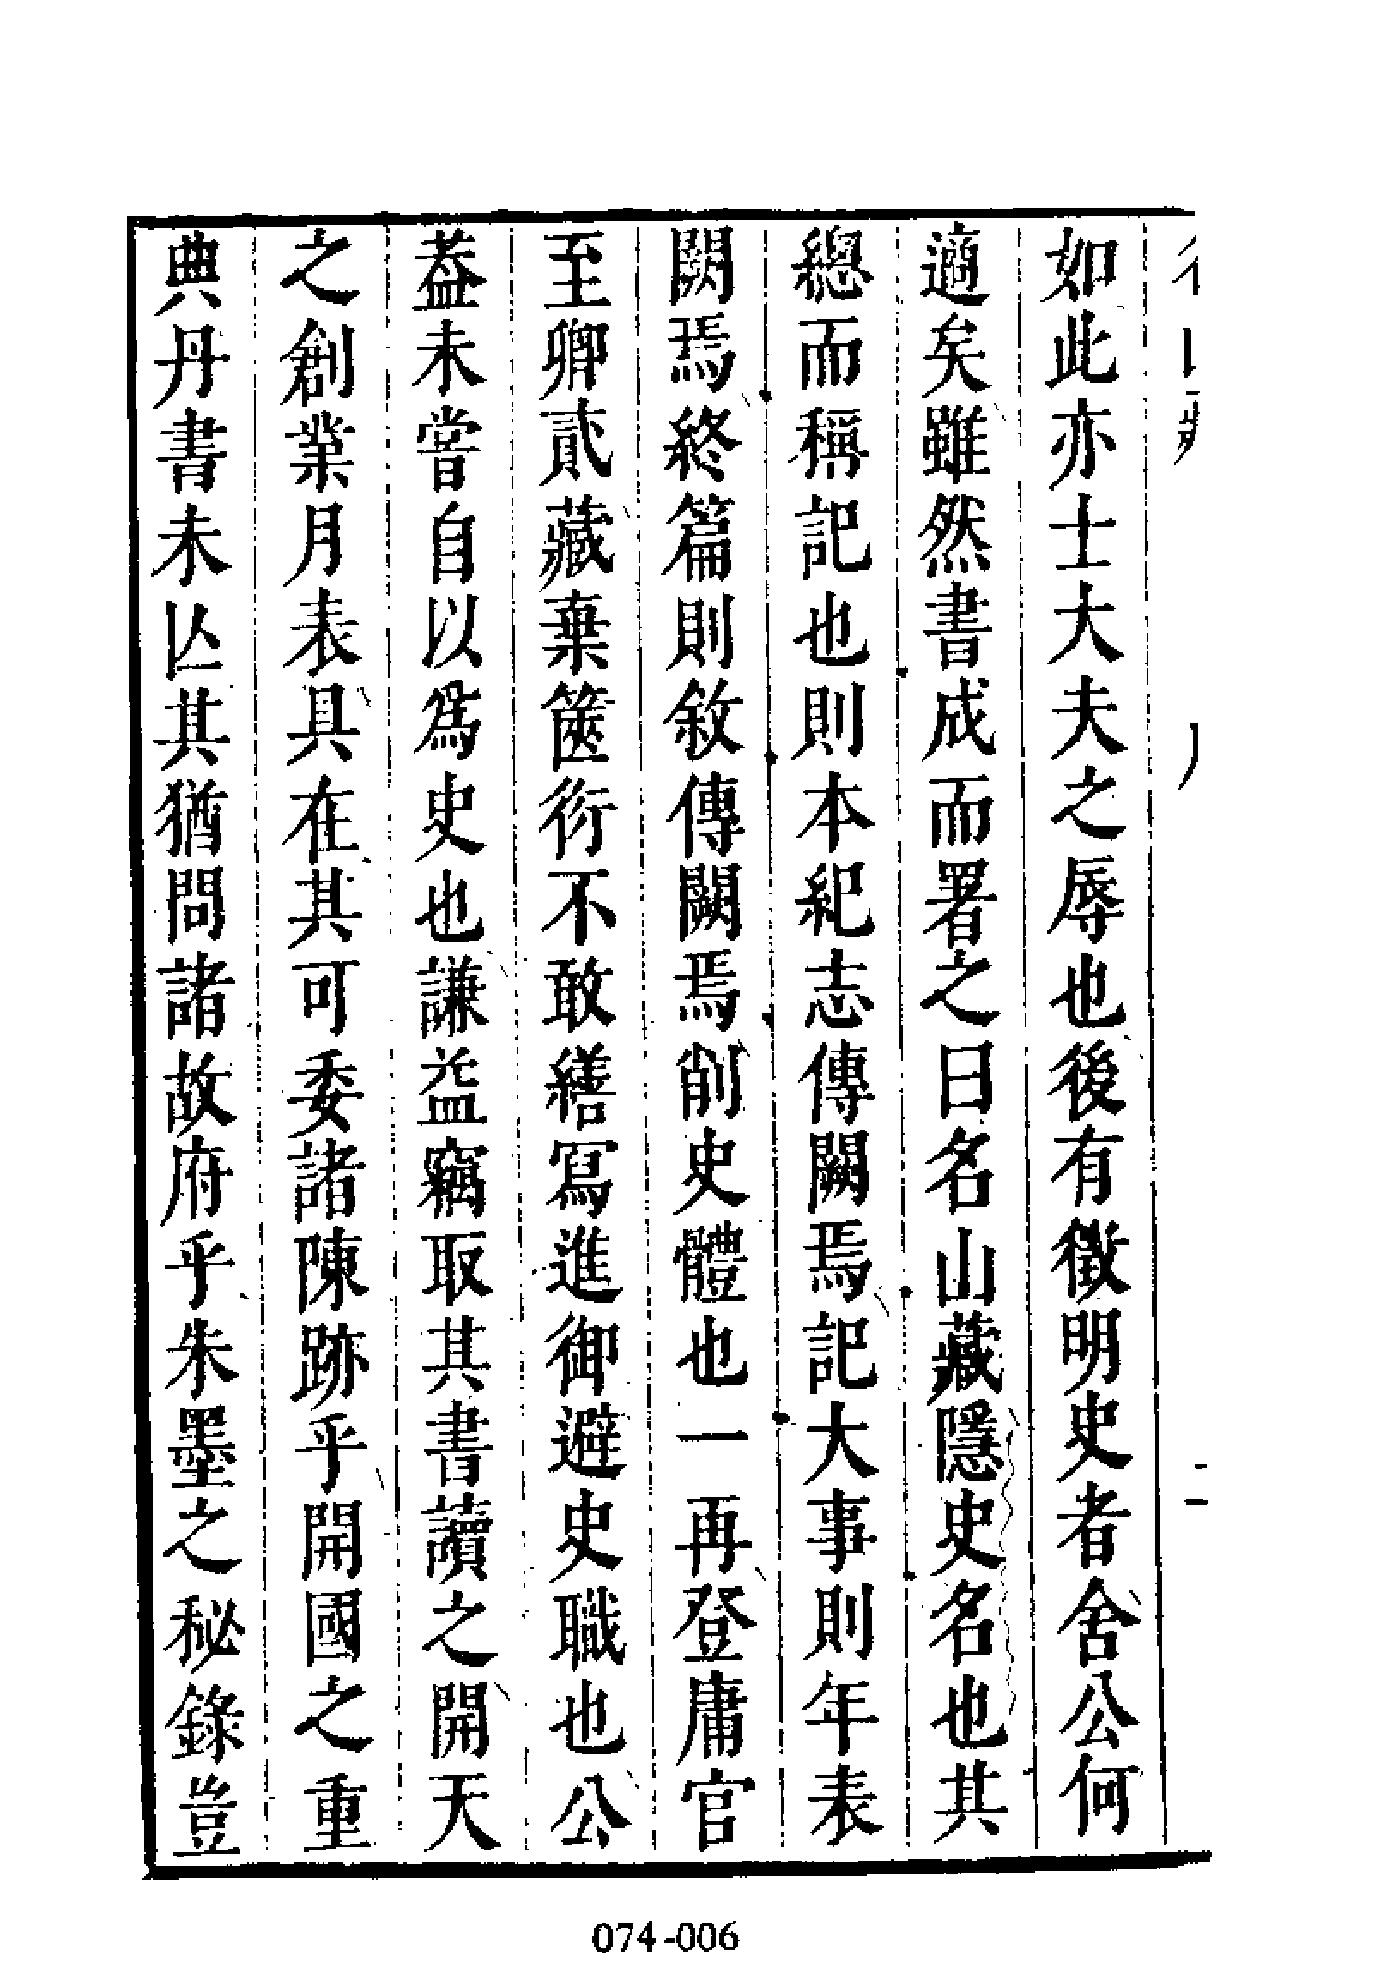 如此亦士大夫之辱也後有徵明史者舍公何
適矣雖然書成而署之曰名山藏隱史名也其
總而稱記也則本紀志傳闕焉記大事則年表
闕焉終篇則敘傳闕焉削史體也一再登庸官
至卿貳藏棄篋衍不敢繕寫進御避史職也公
葢未嘗自以爲史也謙益竊取其書讀之開天
之創業月表具在其可委諸陳跡乎開國之重
典丹書未亾其猶問諸故府乎朱墨之秘錄豈
二
074-006